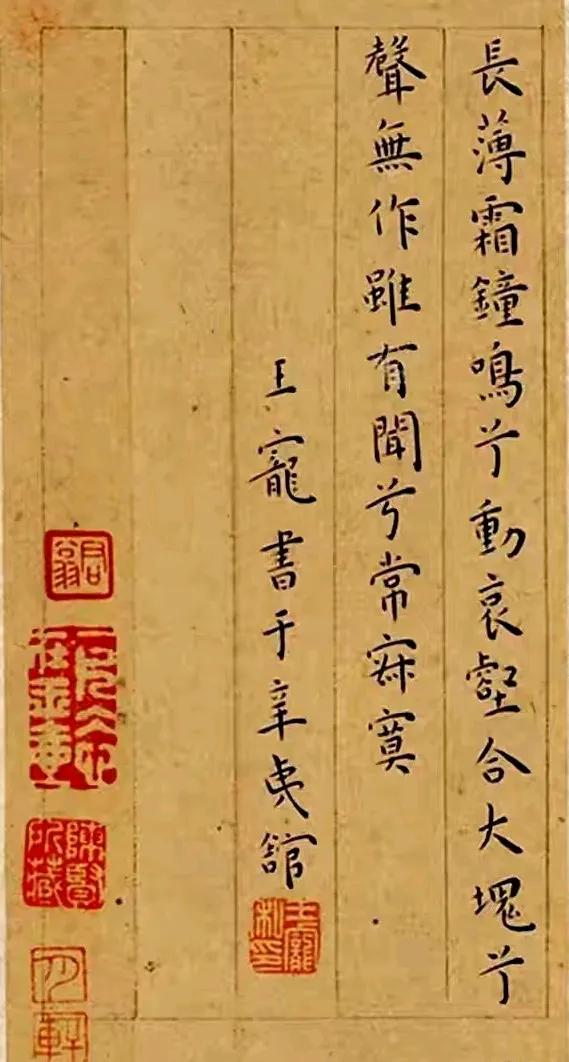 長薄霜鐘鳴兮動哀壑合大塊兮
聲無作雖有聞兮常寂寞
王寵書于辛夷館
王寵
君翁
陳賢所藏